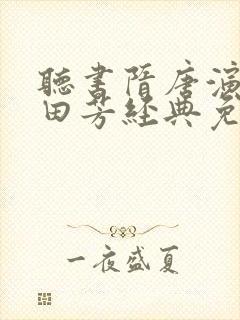 聽書隋唐演
田芳經典免
一夜盛夏